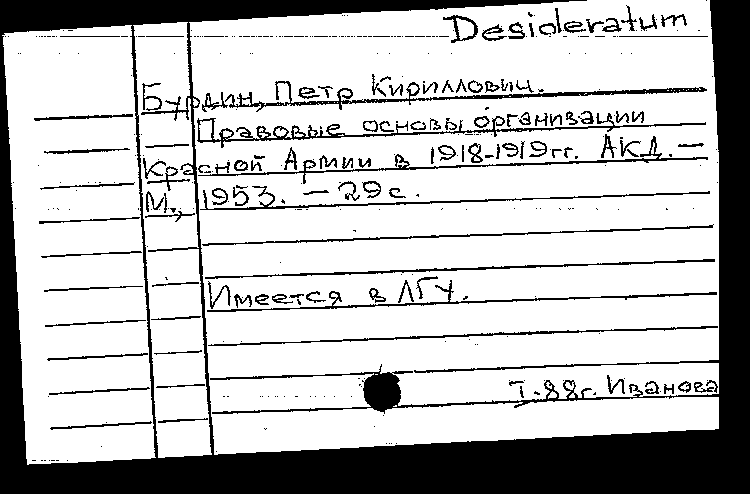 Desideratum
Бурдин, Петр Кириллович.
Правовые основы организации
Красной Армии в 1918-1919гг. АКД. —
М., 1953. — 29с.
Имеется в ЛГУ.
I-88г. Иванова